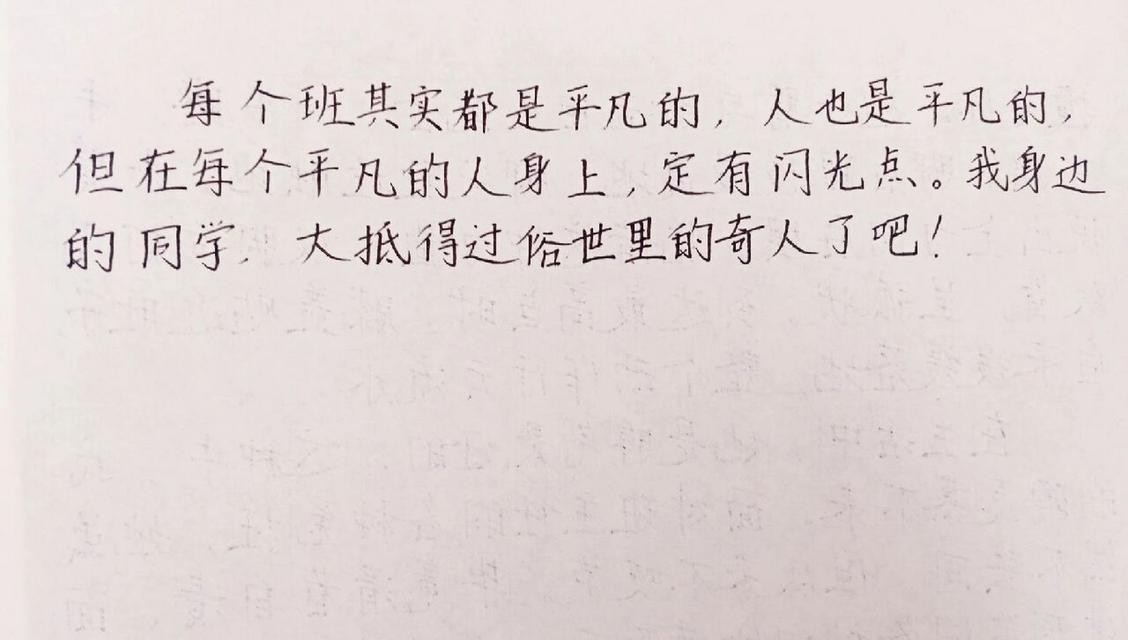 每个班其实都是平凡的，人也是平凡的，
但在每个平凡的人身上，定有闪光点。我身边
的同学，大抵得过俗世里的奇人了吧！